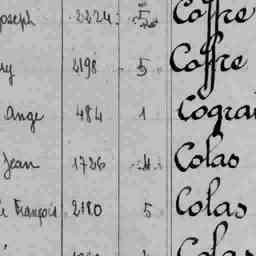 Joseph 2224 5 Coffre
ry 2198 5 Coffre
Ange 484 1 Cograi
Jean 1726 4 Colas
François 2180 5 Colas